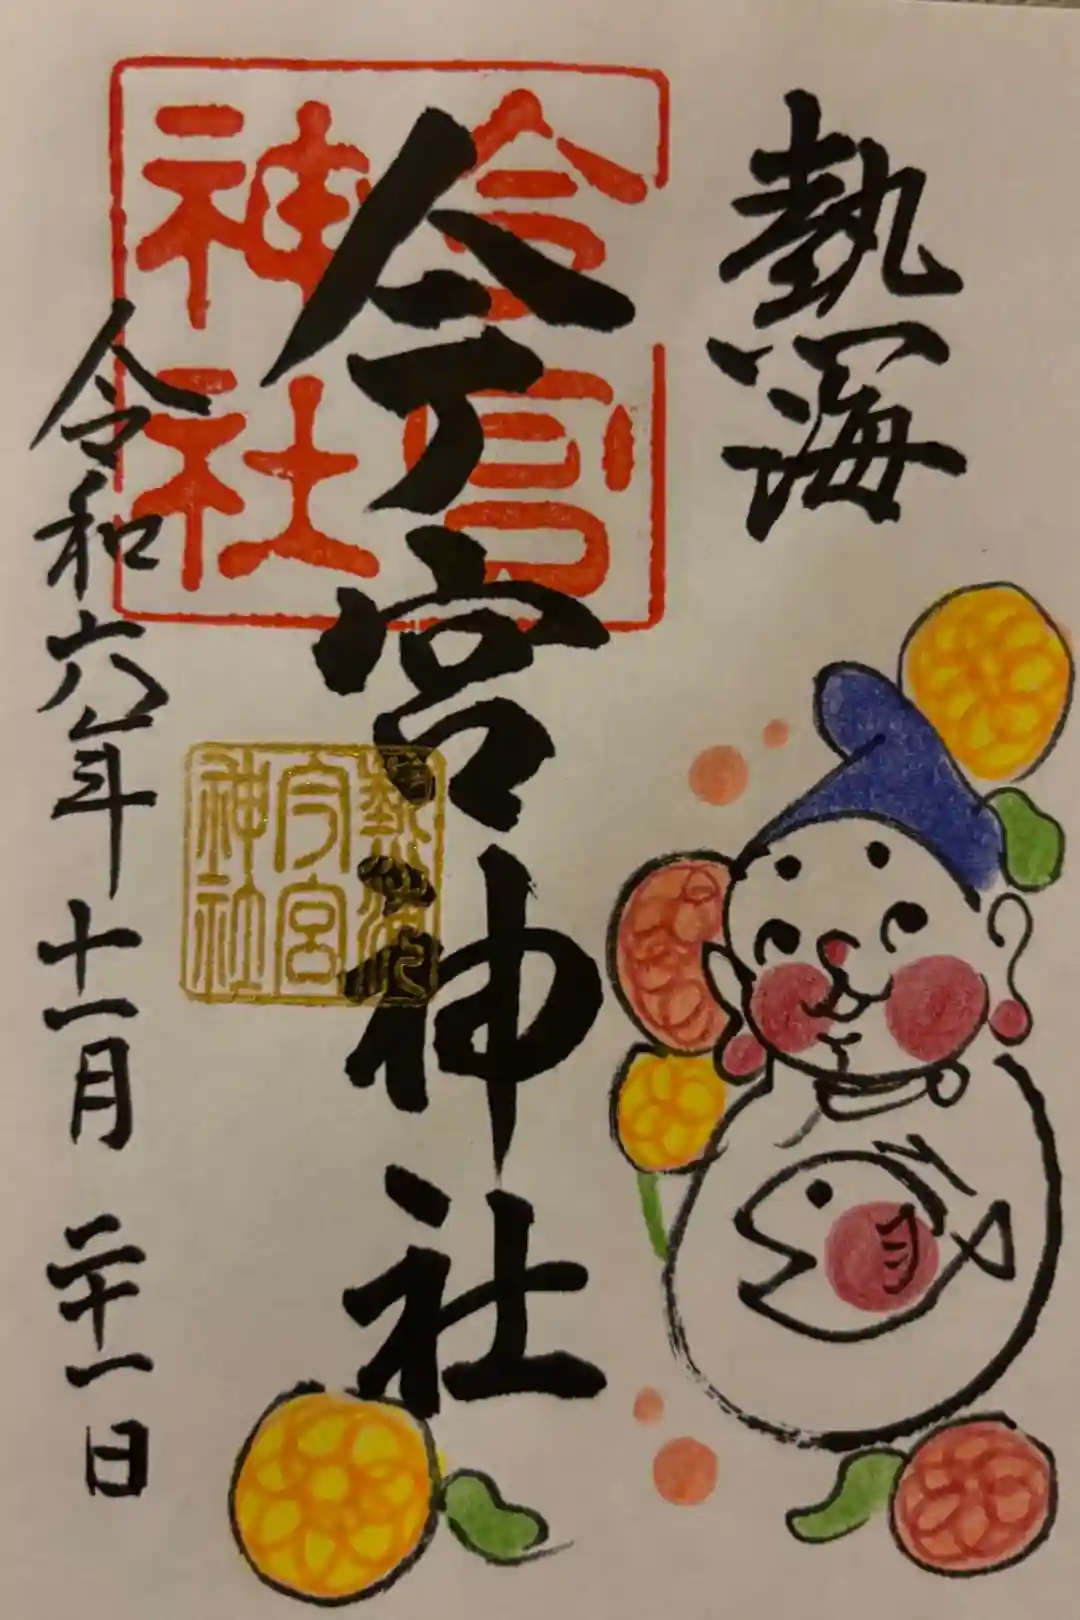 熱海
今宮神社
令和六年十一月二十一日
今宮
神社
熱海
今宮
神社